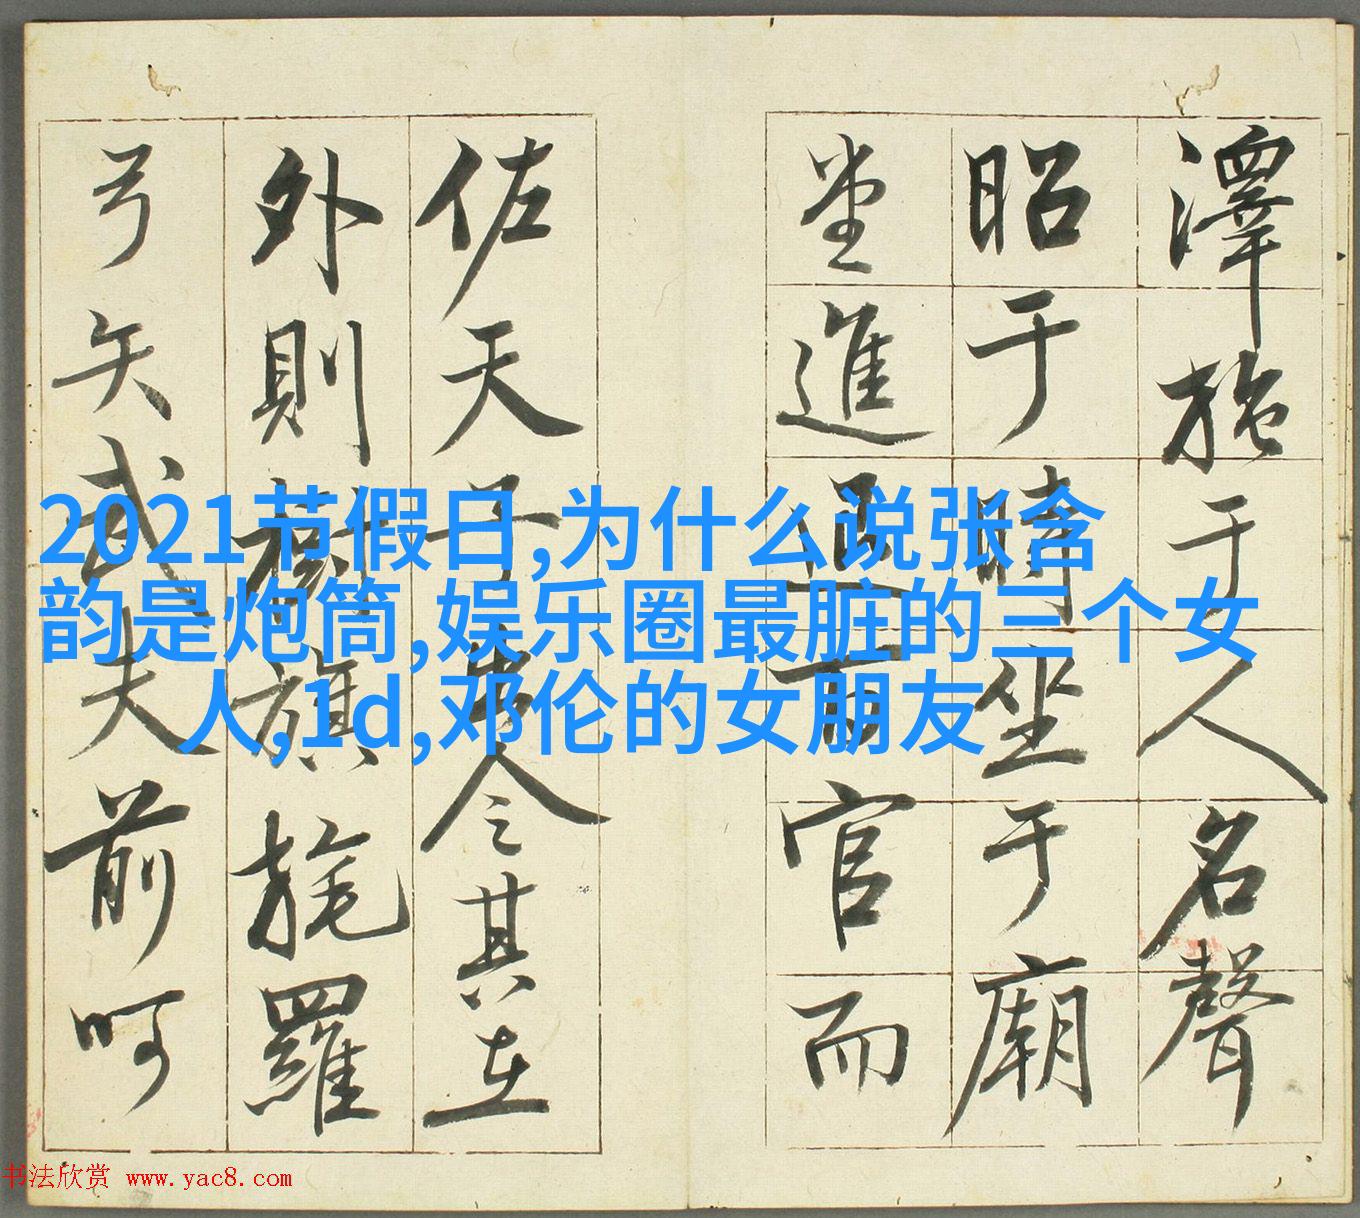 澤施于人名聲
昭于時坐于廟
堂進退百官而
佐天子出令其在
外則樹旗旄羅
弓矢武夫前呵
2021节假日,为什么说张含
韵是炮筒,娱乐圈最脏的三个女
人,1d,邓伦的女朋友
书法欣赏 www.yac8.com